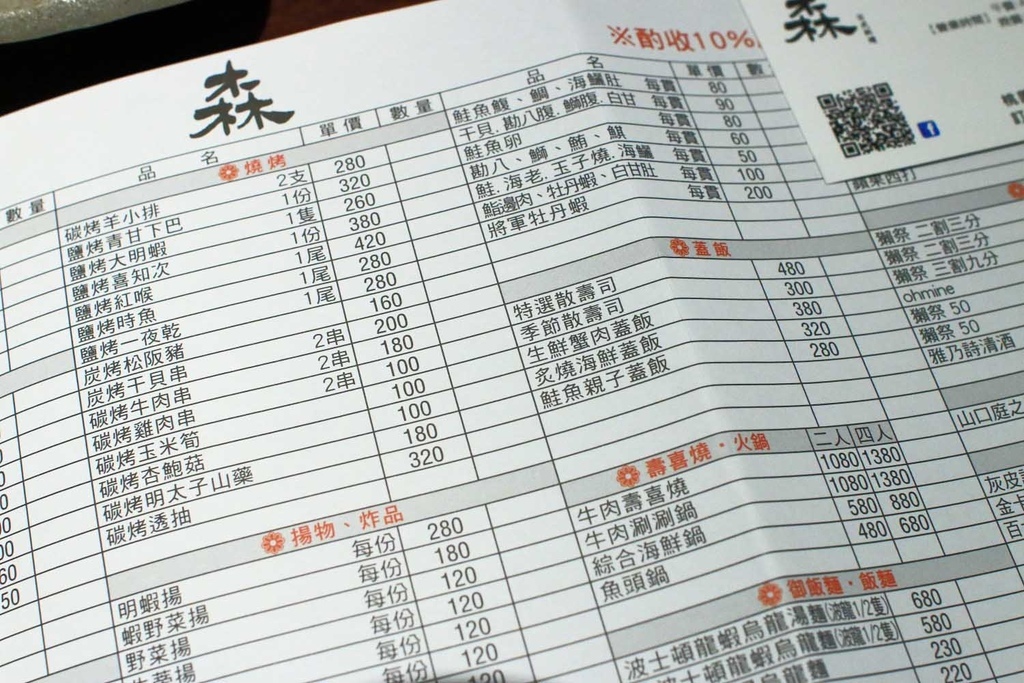 森
※酌收10%
數量
品 名 單價 數量
燒烤
碳烤羊小排 2支 280
鹽烤青甘下巴 1份 320
鹽烤大明蝦 1隻 260
鹽烤喜知次 1份 380
鹽烤紅喉 1尾 420
鹽烤時魚 1尾 280
鹽烤一夜乾 1尾 280
炭烤松阪豬 160
炭烤干貝串 2串 200
碳烤牛肉串 2串 180
碳烤雞肉串 2串 100
碳烤玉米筍 100
碳烤杏鮑菇 100
碳烤明太子山藥 180
碳烤透抽 320
揚物、炸品
明蝦揚 每份 280
蝦野菜揚 每份 180
野菜揚 每份 120
每份 120
每份 120
120
品 名 單價 數
鮭魚鰻、鯛、海鱺肚 每貫 80
干貝.勘八腹.鰤腹.白甘 每貫 90
鮭魚卵 每貫 80
勘八、鰤、鮪、鯕 每貫 60
鮭.海老.玉子燒.海鱺 每貫 50
鮨邊肉、牡丹蝦、白甘肚 每貫 100
將軍牡丹蝦 每貫 200
蓋飯
特選散壽司 480
季節散壽司 300
生鮮蟹肉蓋飯 380
炙燒海鮮蓋飯 320
鮭魚親子蓋飯 280
壽喜燒·火鍋 二人 四人
牛肉壽喜燒 1080 1380
牛肉涮涮鍋 1080 1380
綜合海鮮鍋 580 880
魚頭鍋 480 680
御飯麵·飯麵
波士頓龍蝦烏龍湯麵(波龍1/2隻) 680
波士頓龍蝦烏龍麵(波龍1/2隻) 580
烏龍麵 230
220
蘋果西打
獺祭 二割三分
獺祭 二割三分
獺祭 三割九分
ohmine
獺祭 50
獺祭 50
雅乃詩清酒
山口庭之
金卡
百
60
50
森
【營業時間】
f